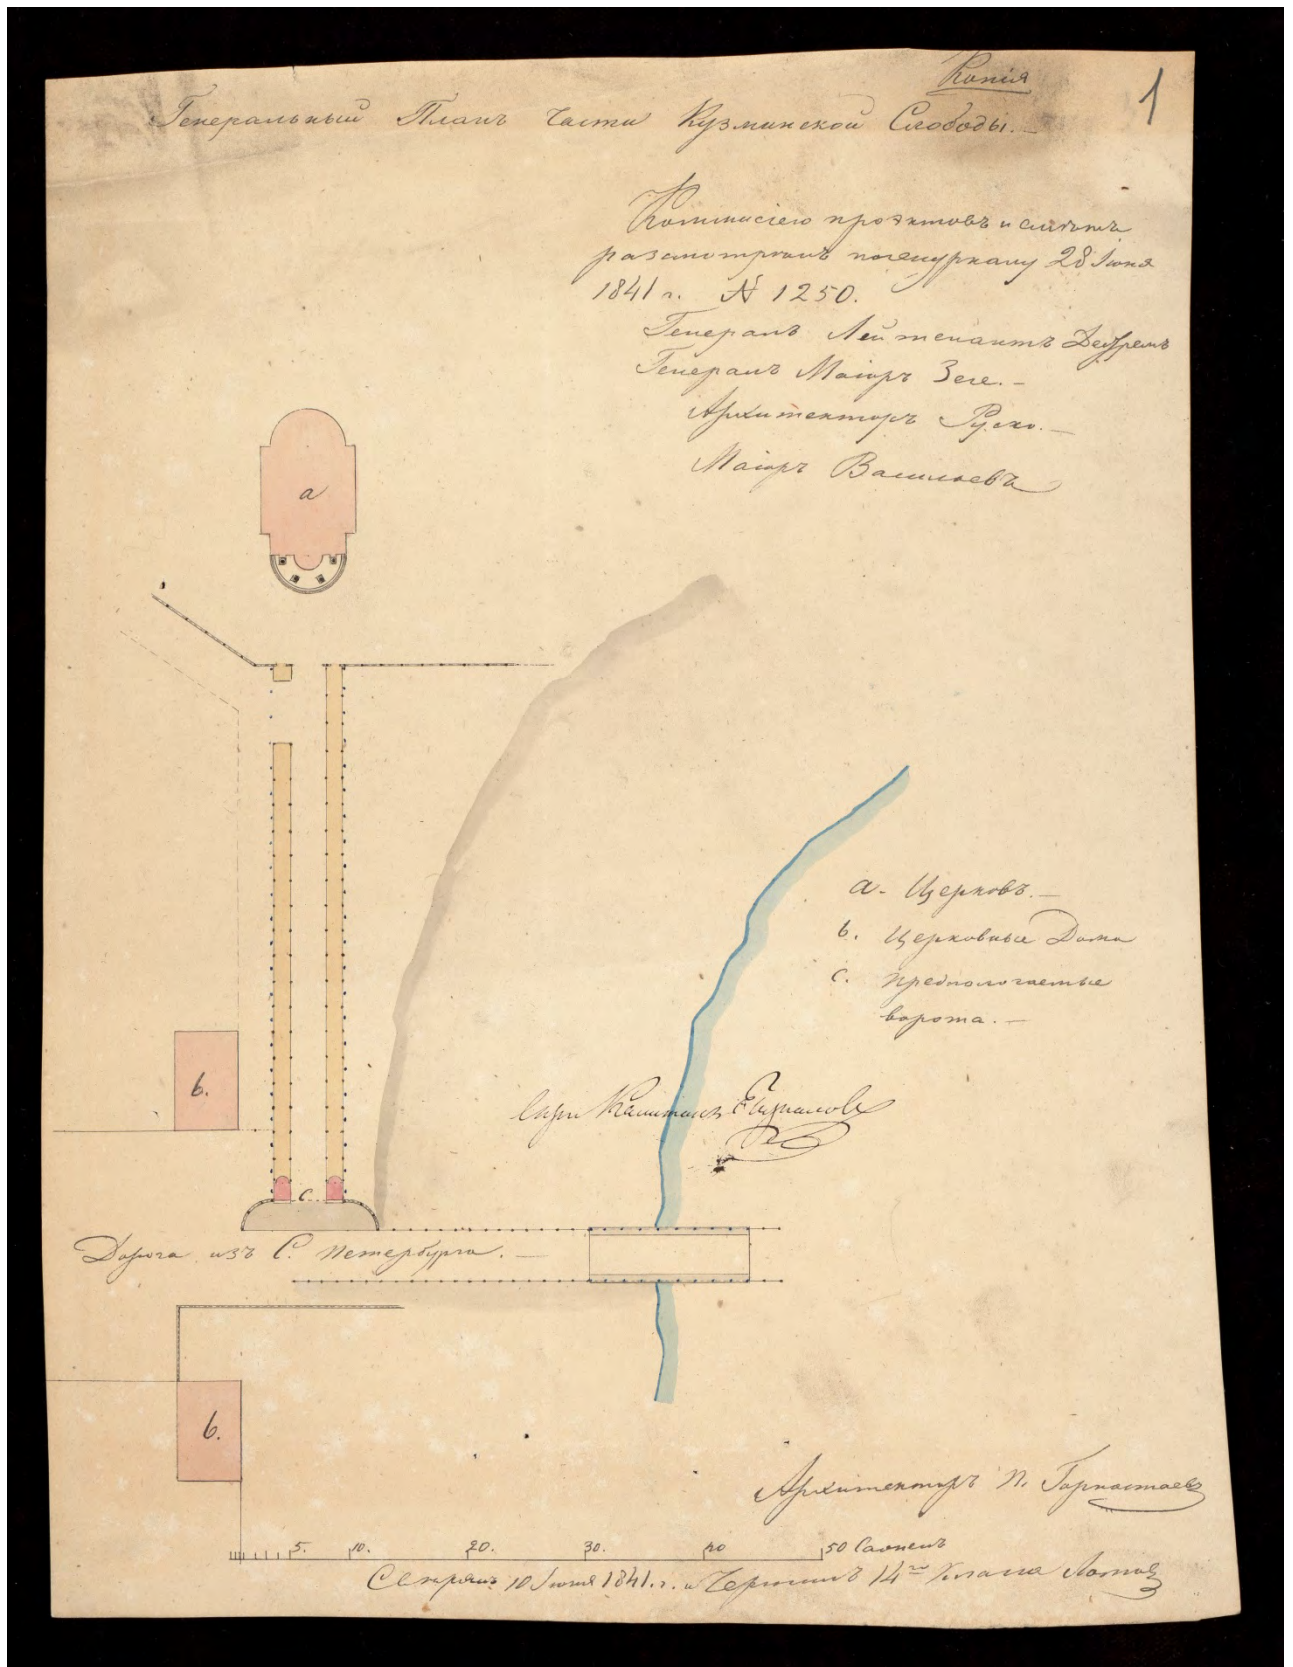 Копія
1
Генеральный Планъ части Кузминской Слободы.
Коммисіею проэктовъ и смѣтъ
разсмотрѣнъ по журналу 28 Іюня
1841 г. № 1250.
Генералъ Лейтенантъ Дестремъ
Генералъ Маіоръ Зеге.
Архитекторъ Руско.
Маіоръ Васильевъ
a
a. Церковь.
b. Церковные Дома
c. предпологаемые
ворота.
b.
Капитанъ
c.
Дорога изъ С. петербурга.
b.
Архитекторъ И. Горностаевъ
5. 10. 20. 30. 40 50 Саженъ
10 Іюня 1841. г. и Чертилъ 14го класа